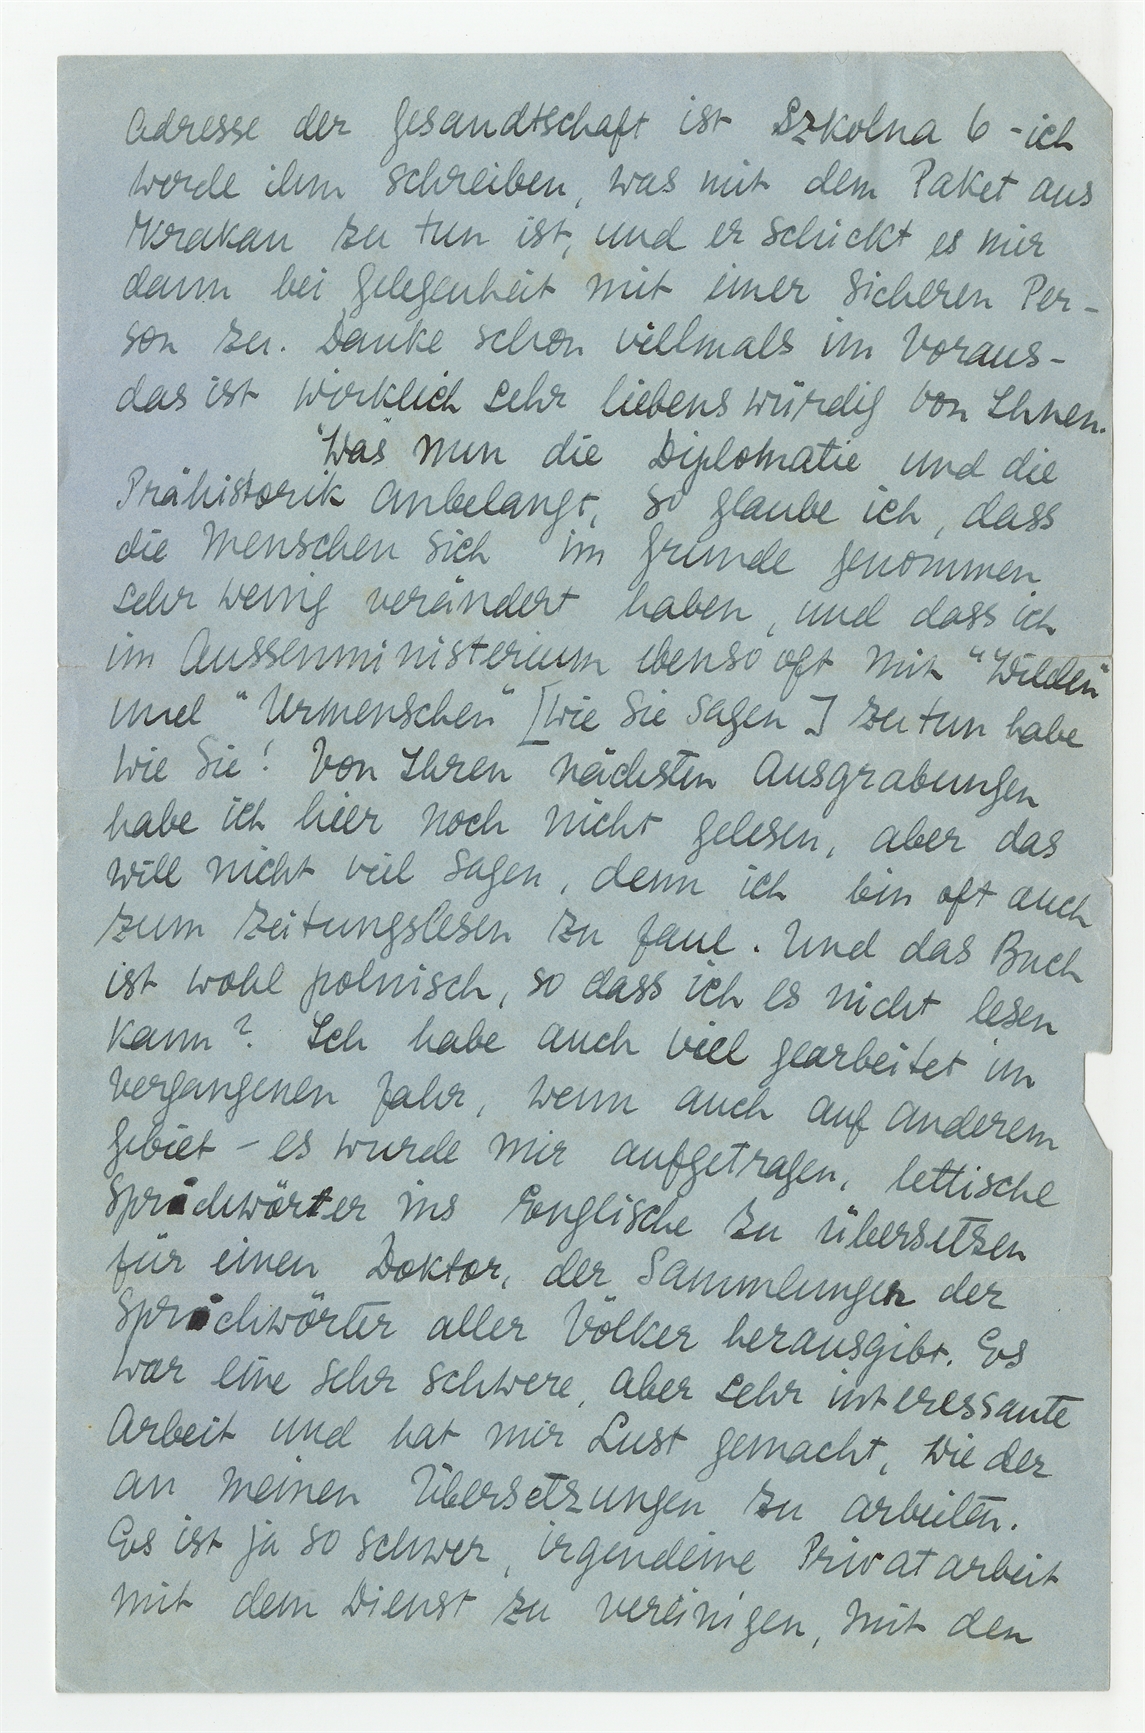 Adresse der Gesandtschaft ist Szkolna 6 - ich
werde ihm schreiben, was mit dem Paket aus
Krakau zu tun ist, und er schickt es mir
dann bei Gelegenheit mit einer sicheren Per-
son zu. Danke schon villmals im Voraus -
das ist wirklich sehr liebenswürdig von Ihnen.
Was nun die Diplomatie und die
Prähistorik anbelangt, so glaube ich, dass
die Menschen sich im Grunde genommen
sehr wenig verändert haben, und dass ich
im Aussenministerium ebenso oft mit "Wilden"
und "Urmenschen" [wie Sie sagen] zu tun habe
wie Sie! Von Ihren nächsten Ausgrabungen
habe ich hier noch nicht gelesen, aber das
will nicht viel sagen, denn ich bin oft auch
zum Zeitungslesen zu faul. Und das Buch
ist wohl polnisch, so dass ich es nicht lesen
kann? Ich habe auch viel gearbeitet im
vergangenen Jahr, wenn auch auf anderem
Gebiet - es wurde mir aufgetragen, lettische
Sprichwörter ins Englische zu übersetzen
für einen Doktor, der Sammlungen der
Sprichwörter aller Völker herausgibt. Es
war eine sehr schwere, aber sehr interessante
Arbeit und hat mir Lust gemacht, wieder
an meinen Übersetzungen zu arbeiten.
Es ist ja so schwer, irgendeine Privatarbeit
mit dem Dienst zu vereinigen, mit den